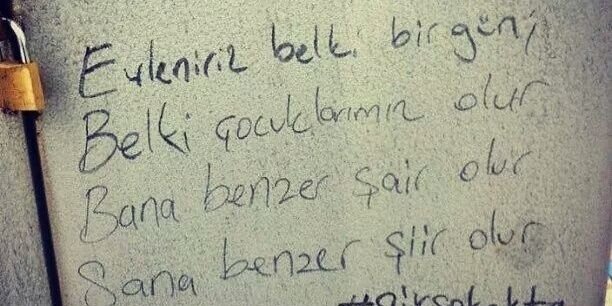 Evleniriz belki bir gün;
Belki çocuklarımız olur
Bana benzer şair olur
Sana benzer şiir olur